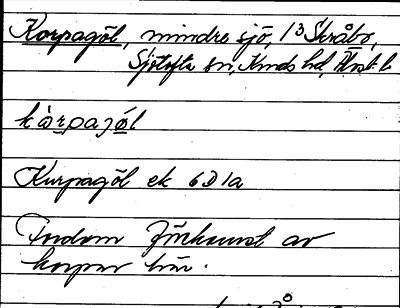 Korpagöl, mindre sjö, 13 Skråbo,
Sjötofta sn, Kinds hd, Älvsb. l.
kòrpaȷó̱l
Kurpagöl ek 6D1a
Fordom förekomst av
korpar här.